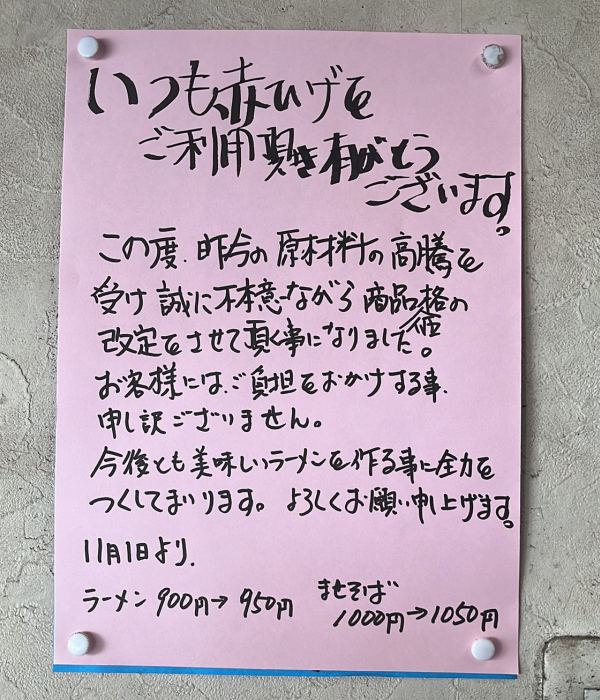 いつも赤ひげを
ご利用頂き有がとう
ございます。
この度、昨今の原材料の高騰を
受け誠に不本意ながら商品価格の
改定をさせて頂く事になりました。
お客様には、ご負担をおかけする事、
申し訳ございません。
今後とも美味しいラーメンを作る事に全力を
つくしてまいります。よろしくお願い申し上げます。
11月1日より、
ラーメン 900円→950円 まぜそば
1000円→1050円